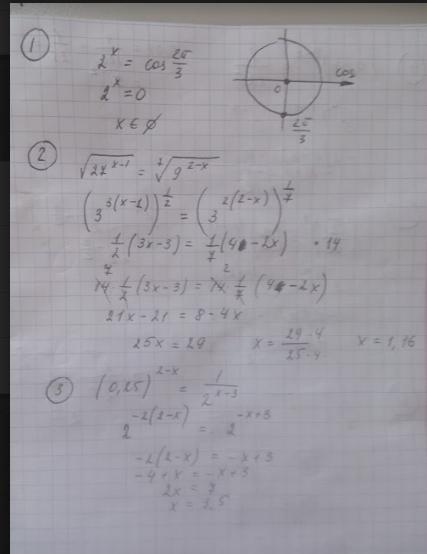 1
2^x = cos 2π/3
2^x = 0
x ∈ ∅
cos
0
2π/3
2
√(27^(x-1)) = ⁷√(9^(2-x))
(3^(3(x-1)))^(1/2) = (3^(2(2-x)))^(1/7)
1/2 (3x-3) = 1/7 (4-2x) · 14
7 2
14 · 1/2 (3x-3) = 14 · 1/7 (4-2x)
21x - 21 = 8 - 4x
25x = 29 x = 29·4/25·4 x = 1,16
3
(0,25)^(2-x) = 1/2^(x-3)
2^(-2(2-x)) = 2^(-x+3)
-2(2-x) = -x+3
-4+x = -x+3
2x = 7
x = 3,5